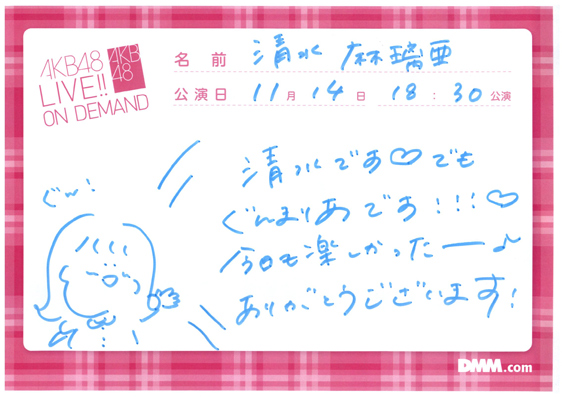 AKB48
LIVE!!
ON DEMAND
AKB
48
名前 清水 麻璃亜
公演日 11月14日 18:30公演
清水です♡でも
ぐんまりあです!!!♡
今日も楽しかったー♪
ありがとうございます!
ぐん!
DMM.com